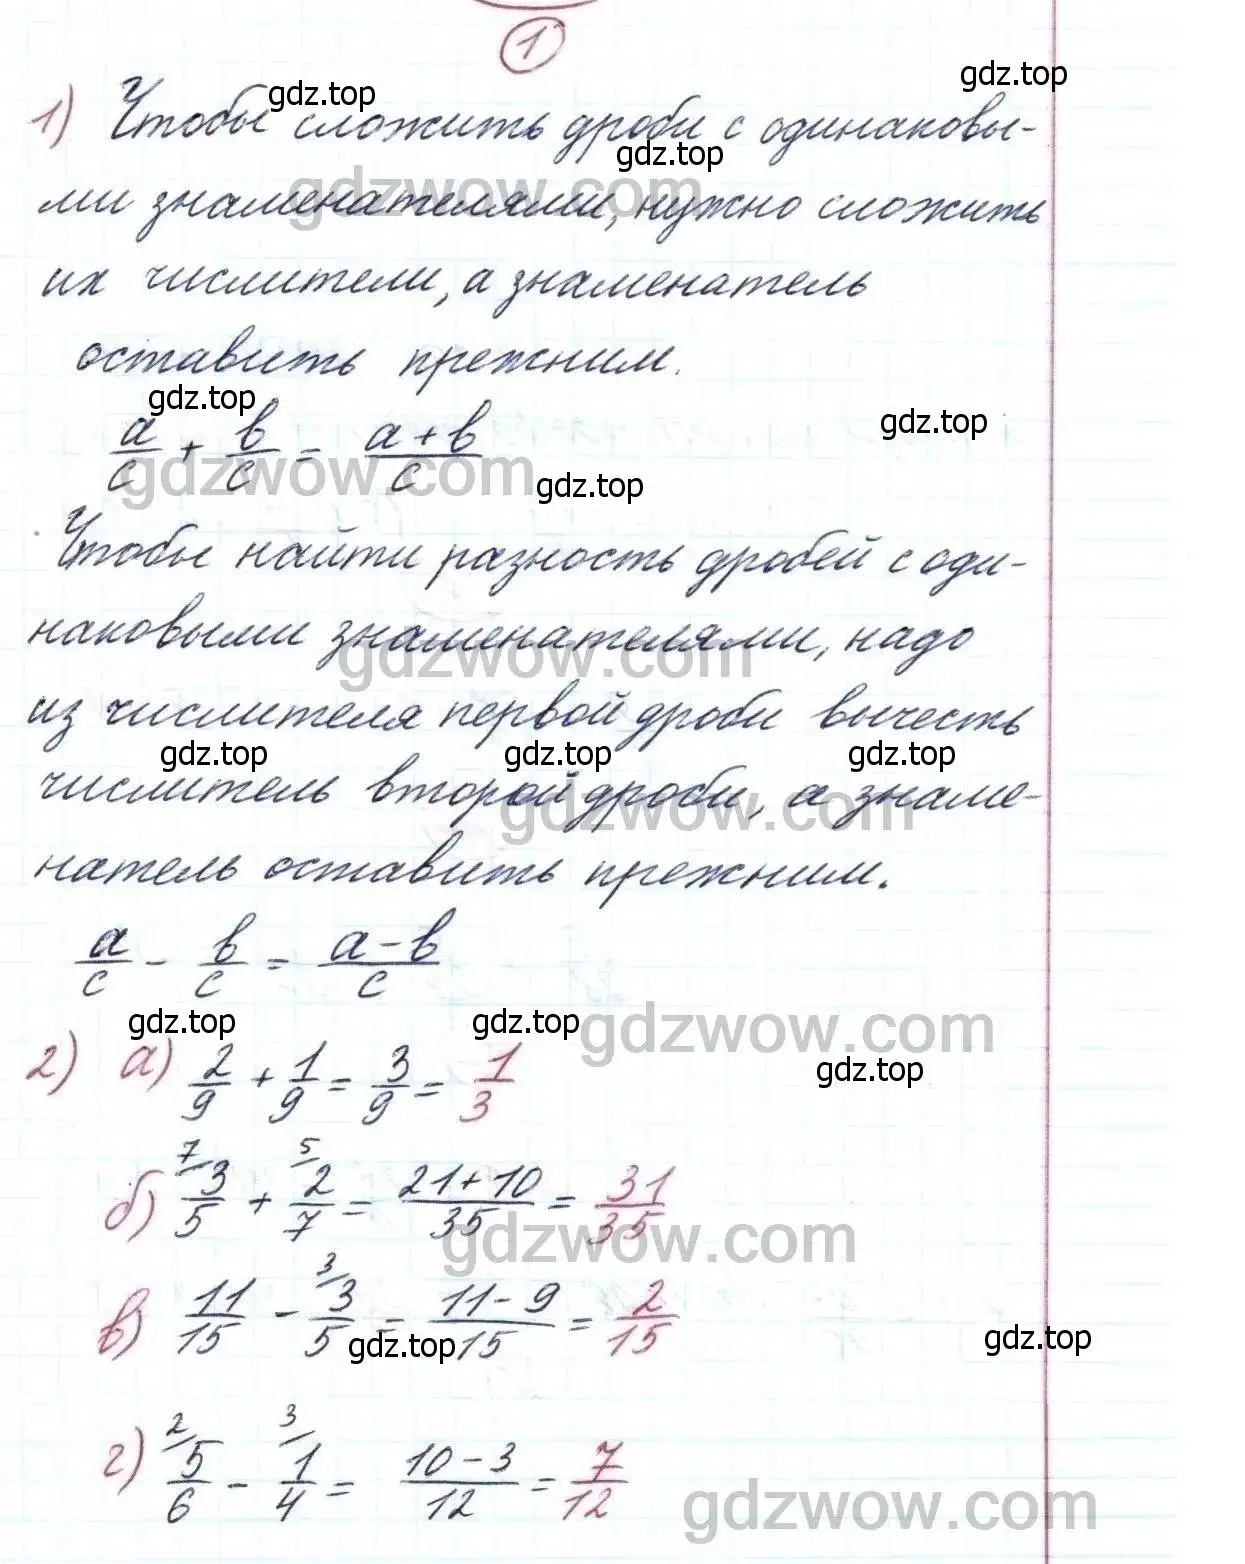 1
1) Чтобы сложить дроби с одинаковы-
ми знаменателями, нужно сложить
их числители, а знаменатель
оставить прежним.
a/c + b/c = a+b/c
Чтобы найти разность дробей с оди-
наковыми знаменателями, надо
из числителя первой дроби вычесть
числитель второй дроби, а знаме-
натель оставить прежним.
a/c - b/c = a-b/c
2) а) 2/9 + 1/9 = 3/9 = 1/3
б) 7/ 3/5 + 5/ 2/7 = 21+10/35 = 31/35
в) 11/15 - 3/ 3/5 = 11-9/15 = 2/15
г) 2/ 5/6 - 3/ 1/4 = 10-3/12 = 7/12
gdz.top
gdz.top
gdz.top
gdzwow.com
gdz.top
gdz.top
gdzwow.com
gdz.top
gdzwow.com
gdz.top
gdz.top
gdz.top
gdzwow.com
gdz.top
gdz.top
gdzwow.com
gdz.top
gdzwow.com
gdz.top
gdz.top
gdzwow.com